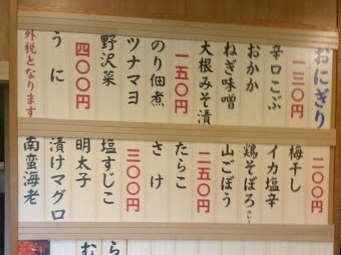 おにぎり
一三〇円
辛口こぶ
おかか
ねぎ味噌
大根みそ漬
一五〇円
のり佃煮
ツナマヨ
野沢菜
四〇〇円
うに
外税となります
二〇〇円
梅干し
イカ塩辛
鶏そぼろ
山ごぼう
二五〇円
たらこ
さけ
三〇〇円
塩すじこ
明太子
漬けマグロ
南蛮海老
ら
む